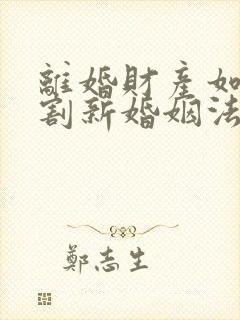 離婚財產如
割新婚姻法
鄭志生